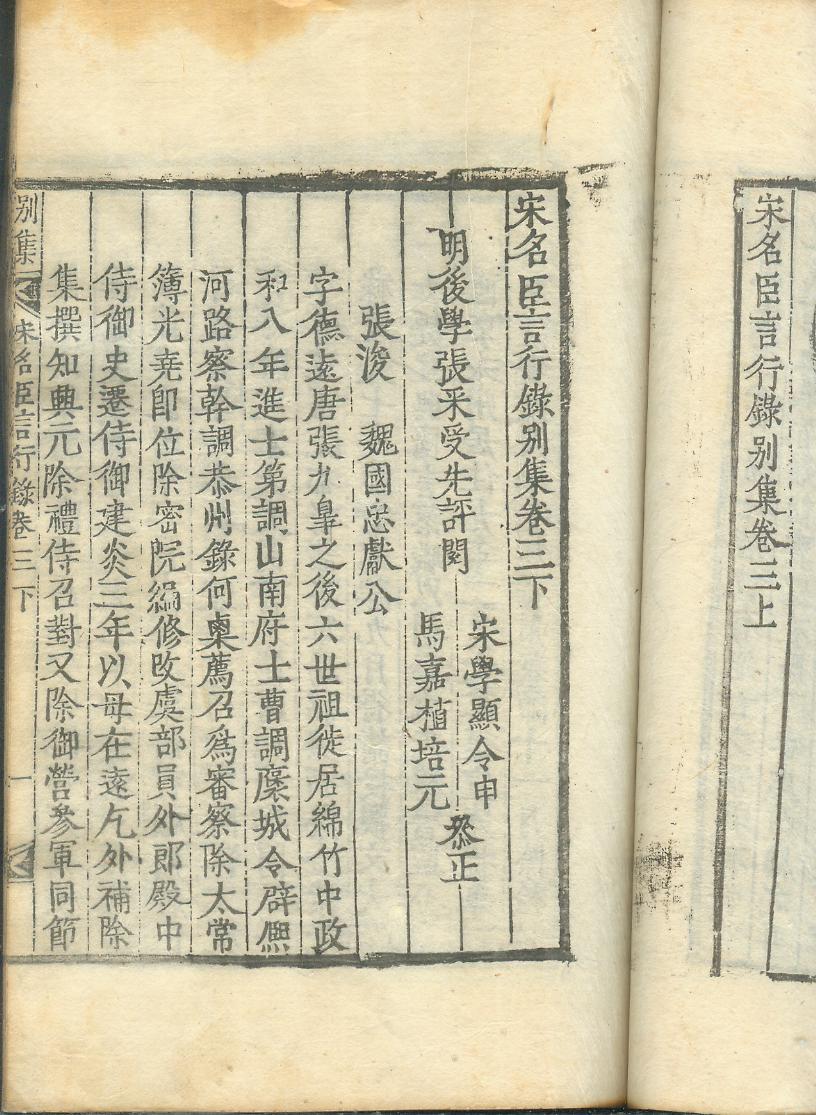 宋名臣言行錄别集卷三上
宋名臣言行錄别集卷三下
明後學張采受先評閱
宋學顯令申
馬嘉植培元
叅正
張浚 魏國忠獻公
字德遠唐張九臯之後六世祖徙居綿竹中政
和八年進士第調山南府士曹調褒城令辟熈
河路察幹調恭州錄何㮚薦召爲審察除太常
簿光堯卽位除密院編修改虞部員外郎殿中
侍御史遷侍御建炎三年以母在遠乞外補除
集撰知興元除禮侍召對又除御營叅軍同節
别集 宋名臣言行錄卷三下 一